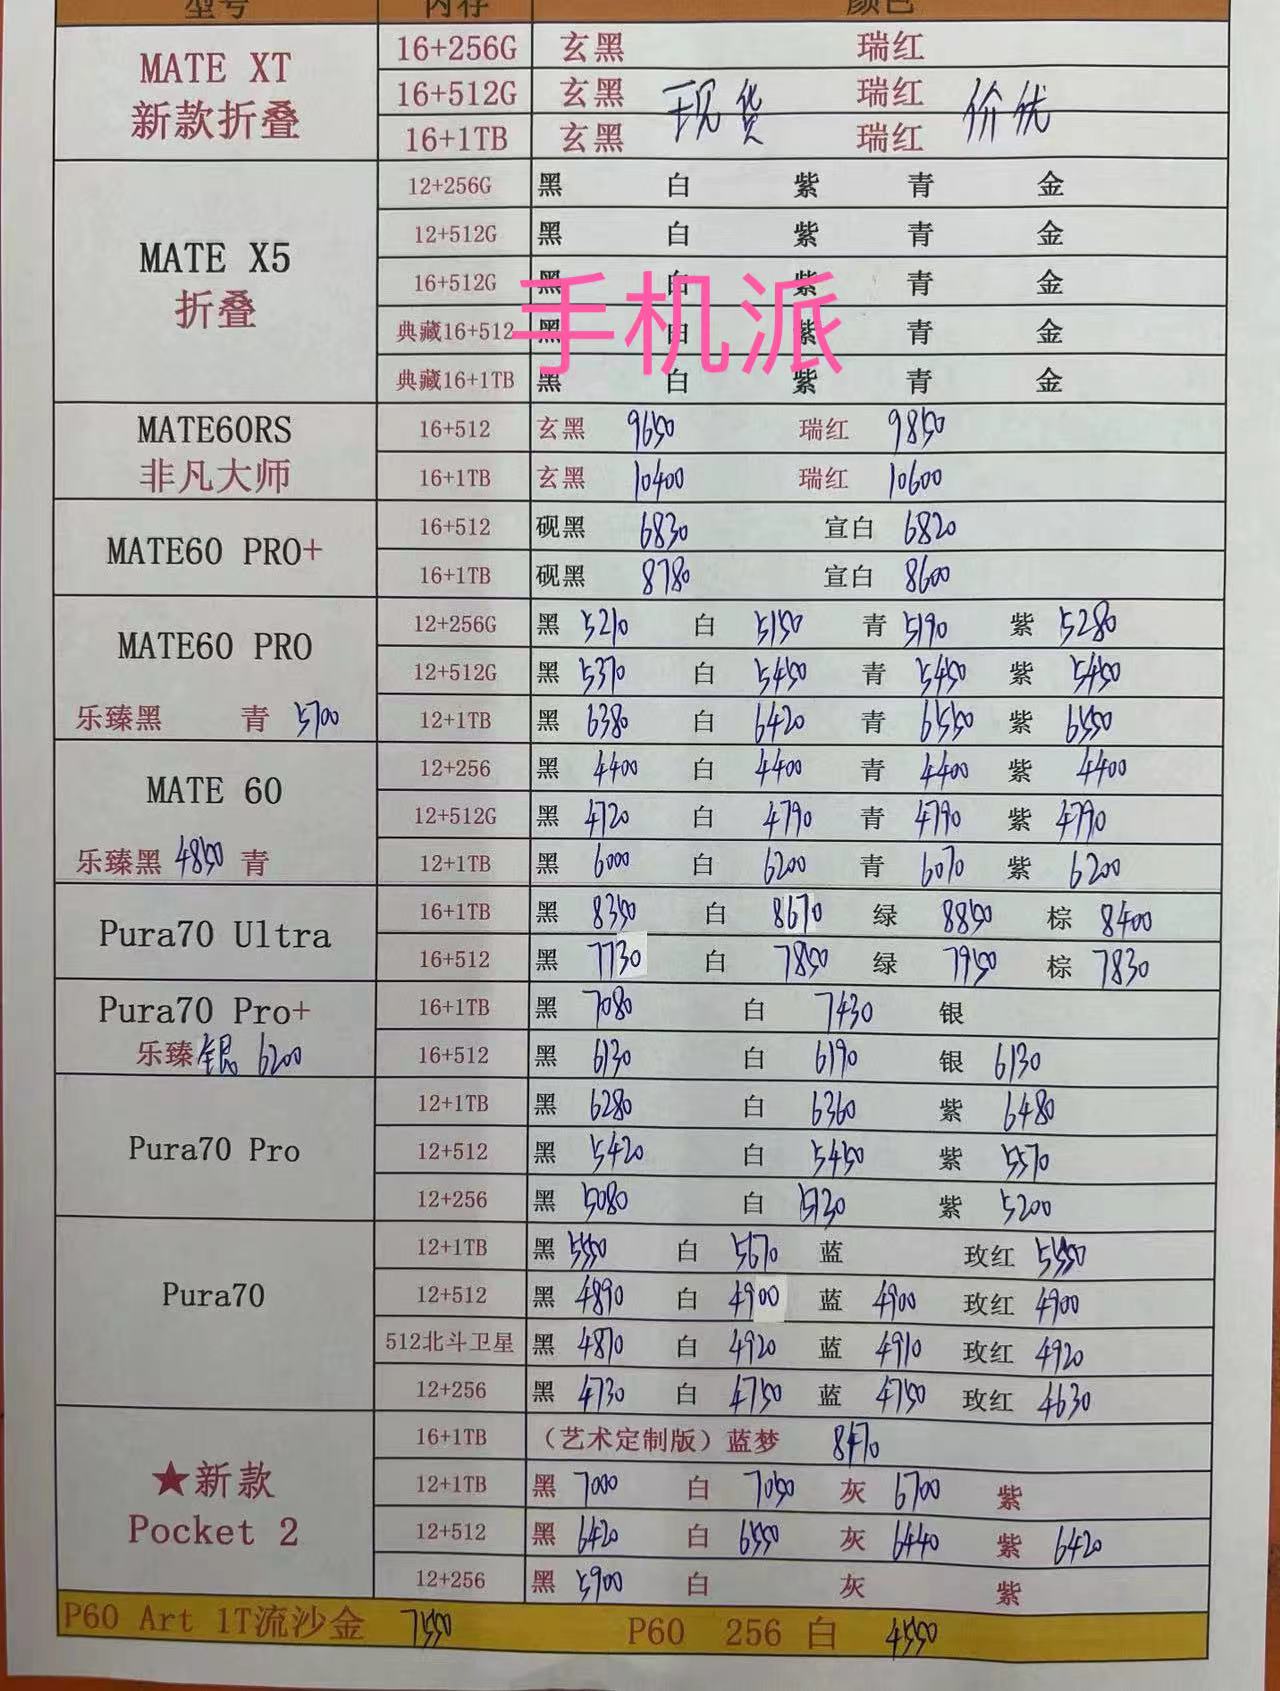 型号 内存 颜色
MATE XT
新款折叠
16+256G 玄黑 瑞红
16+512G 玄黑 瑞红
现货 价优
16+1TB 玄黑 瑞红
MATE X5
折叠
12+256G 黑 白 紫 青 金
12+512G 黑 白 紫 青 金
16+512G 黑 白 紫 青 金
典藏16+512 黑 白 紫 青 金
典藏16+1TB 黑 白 紫 青 金
手机派
MATE60RS
非凡大师
16+512 玄黑 9650 瑞红 9850
16+1TB 玄黑 10400 瑞红 10600
MATE60 PRO+
16+512 砚黑 6830 宣白 6820
16+1TB 砚黑 8780 宣白 8600
MATE60 PRO
乐臻黑 青 5700
12+256G 黑 5210 白 5150 青 5190 紫 5280
12+512G 黑 5370 白 5450 青 5450 紫 5450
12+1TB 黑 6380 白 6420 青 6550 紫 6550
MATE 60
乐臻黑 4850 青
12+256 黑 4400 白 4400 青 4400 紫 4400
12+512G 黑 4720 白 4790 青 4790 紫 4790
12+1TB 黑 6000 白 6200 青 6070 紫 6200
Pura70 Ultra
16+1TB 黑 8350 白 8670 绿 8850 棕 8400
16+512 黑 7730 白 7850 绿 7950 棕 7830
Pura70 Pro+
乐臻银 6200
16+1TB 黑 7080 白 7430 银
16+512 黑 6130 白 6190 银 6130
Pura70 Pro
12+1TB 黑 6280 白 6360 紫 6480
12+512 黑 5420 白 5450 紫 5570
12+256 黑 5080 白 5130 紫 5200
Pura70
12+1TB 黑 5550 白 5670 蓝 玫红 5550
12+512 黑 4890 白 4900 蓝 4900 玫红 4900
512北斗卫星 黑 4870 白 4920 蓝 4910 玫红 4920
12+256 黑 4730 白 4750 蓝 4750 玫红 4630
★新款
Pocket 2
16+1TB （艺术定制版）蓝梦 8470
12+1TB 黑 7000 白 7050 灰 6700 紫
12+512 黑 6420 白 6550 灰 6440 紫 6420
12+256 黑 5900 白 灰 紫
P60 Art 1T流沙金 7550 P60 256 白 4550